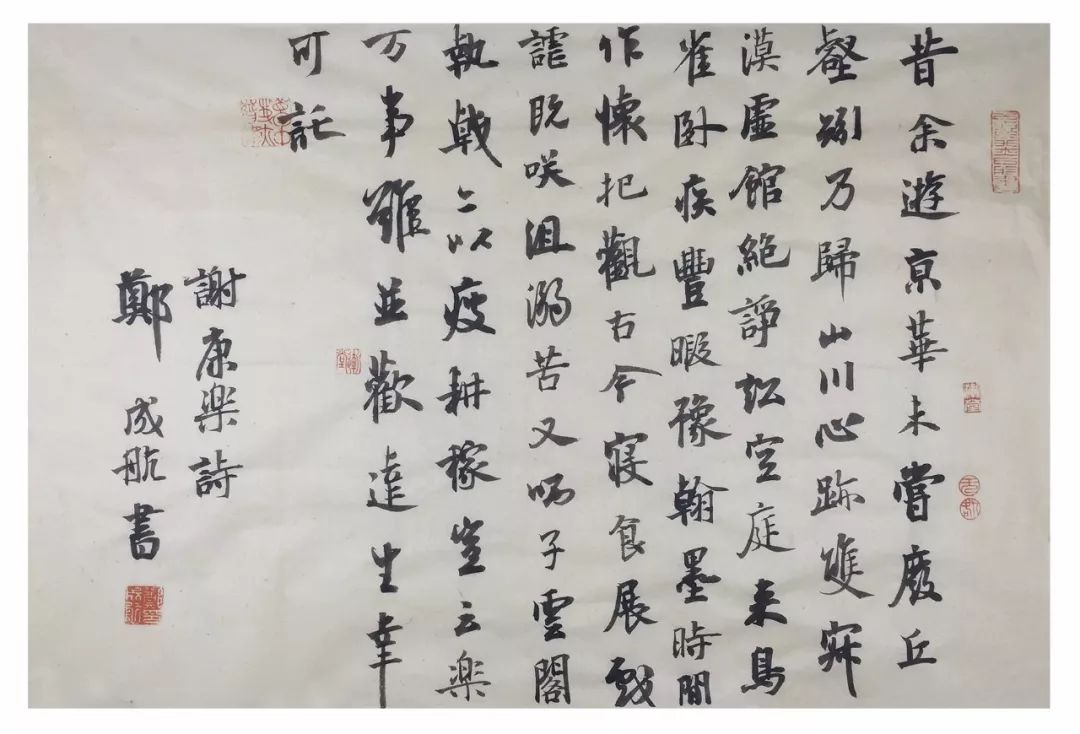 昔余遊京華未嘗廢丘
壑矧乃歸山川心跡雙寂
漠虛館絕諍訟空庭来鳥
雀卧疾豐暇豫翰墨時間
作懷抱觀古今寢食展戲
謔既咲沮溺苦又哂子雲閣
執戟亦以疲耕稼豈云楽
万事難並歡達生幸
可託
謝康楽詩
鄭成航書